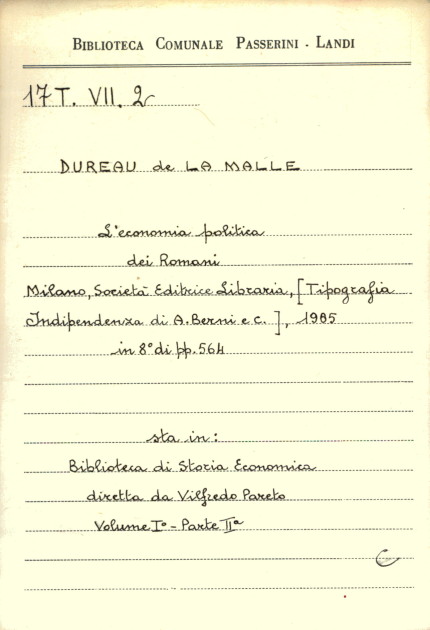 BIBLIOTECA COMUNALE PASSERINI - LANDI
17 T. VII. 2
DUREAU de LA MALLE
L'economia politica
dei Romani
Milano, Società Editrice Libraria, [Tipografia
Indipendenza di A. Berni e C. ], 1985
in 8° di pp. 564
sta in:
Biblioteca di Storia Economica
diretta da Vilfredo Pareto
Volume I° - Parte IIª
C